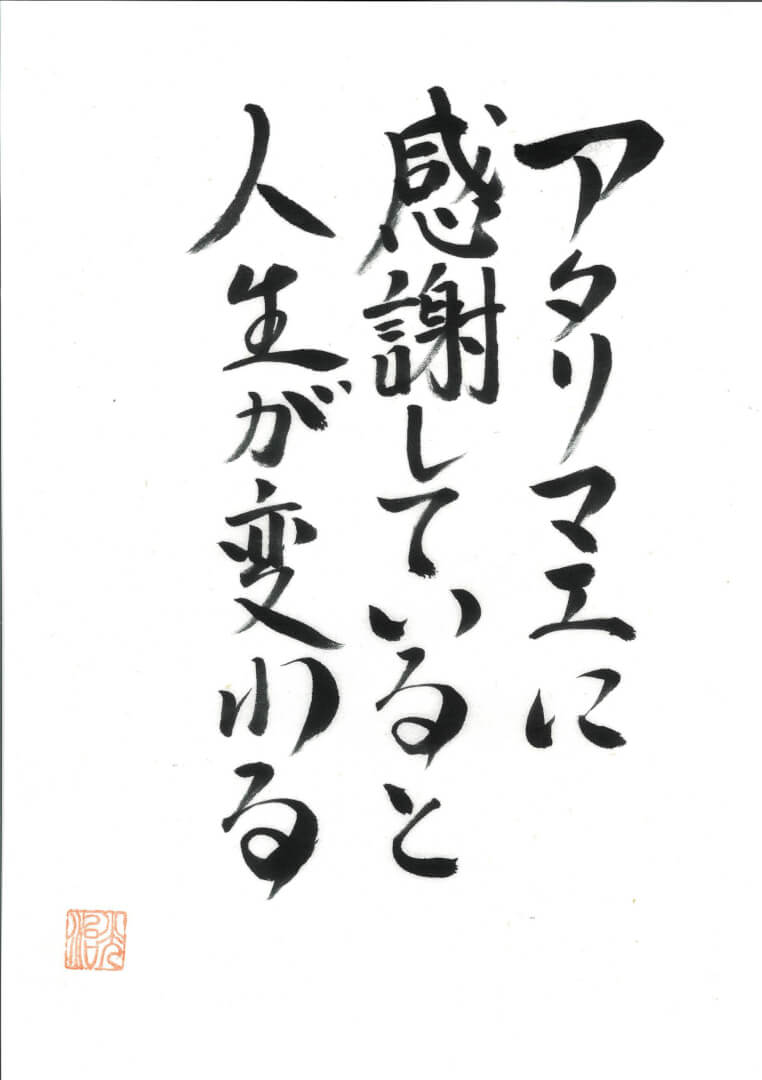 アタリマエに
感謝していると
人生が変わる